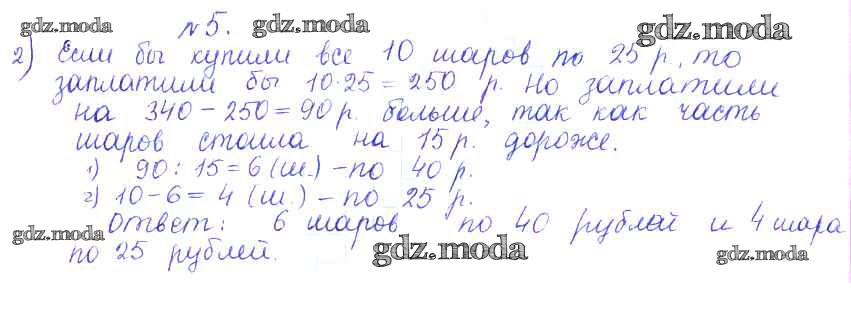 gdz.moda № 5. gdz.moda gdz.moda
2) Если бы купили все 10 шаров по 25 р, то
заплатили бы 10·25 = 250 р. Но заплатили
на 340 - 250 = 90 р. больше, так как часть
шаров стоила на 15 р. дороже.
1) 90 : 15 = 6 (ш.) - по 40 р.
2) 10 - 6 = 4 (ш.) - по 25 р.
Ответ: 6 шаров по 40 рублей и 4 шара
gdz.moda по 25 рублей. gdz.moda gdz.moda